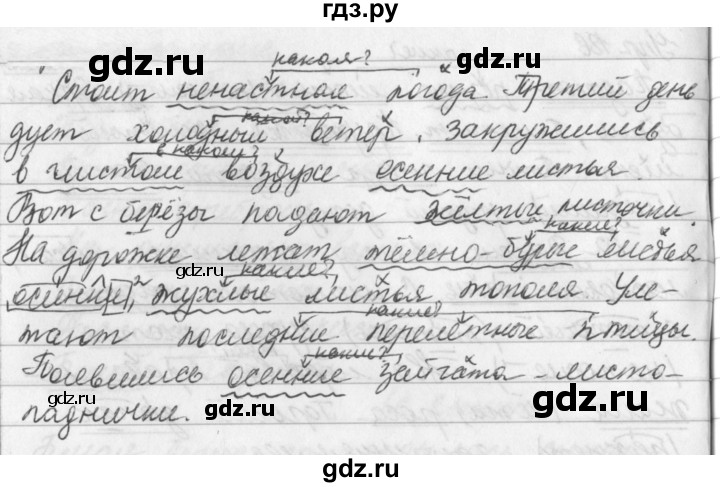 гдз.ру
какая?
Стоит ненастная погода. Третий день
какой?
дует холодный ветер. Закружились
в каком?
в чистом воздухе осенние листья.
Вот с берёзы падают жёлтые листочки.
какие?
На дорожке лежат тёмно-бурые листья
gdz.ru
какие?
осинки, жухлые листья тополя. Уле-
какие?
тают последние перелётные птицы.
какие?
Появились осенние зайчата - листо-
паднички.
gdz.ru
gdz.ru
gdz.ru